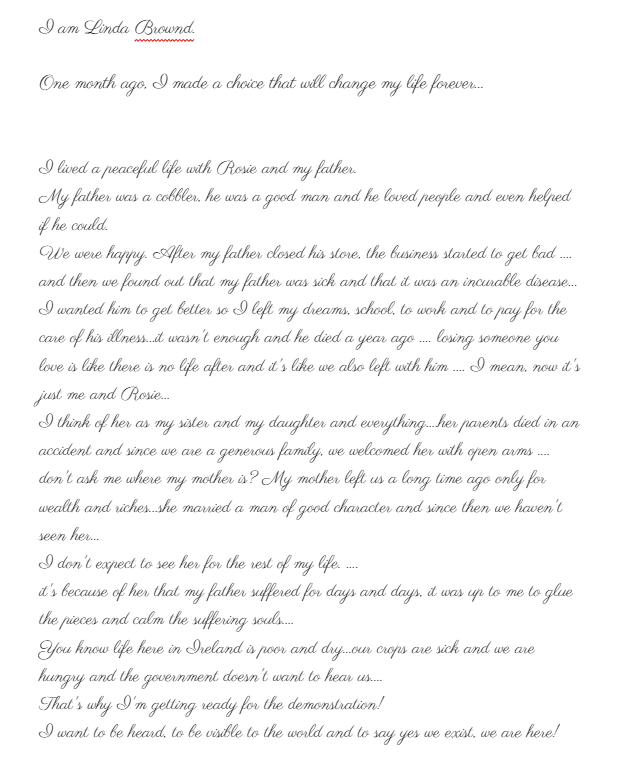 I am Linda Brownd.
One month ago, I made a choice that will change my life forever...
I lived a peaceful life with Rosie and my father.
My father was a cobbler, he was a good man and he loved people and even helped
if he could.
We were happy. After my father closed his store, the business started to get bad ....
and then we found out that my father was sick and that it was an incurable disease...
I wanted him to get better so I left my dreams, school, to work and to pay for the
care of his illness...it wasn't enough and he died a year ago .... losing someone you
love is like there is no life after and it's like we also left with him .... I mean, now it's
just me and Rosie...
I think of her as my sister and my daughter and everything....her parents died in an
accident and since we are a generous family, we welcomed her with open arms ....
don't ask me where my mother is? My mother left us a long time ago only for
wealth and riches...she married a man of good character and since then we haven't
seen her...
I don't expect to see her for the rest of my life. ....
it's because of her that my father suffered for days and days, it was up to me to glue
the pieces and calm the suffering souls....
You know life here in Ireland is poor and dry...our crops are sick and we are
hungry and the government doesn't want to hear us....
That's why I'm getting ready for the demonstration!
I want to be heard, to be visible to the world and to say yes we exist, we are here!